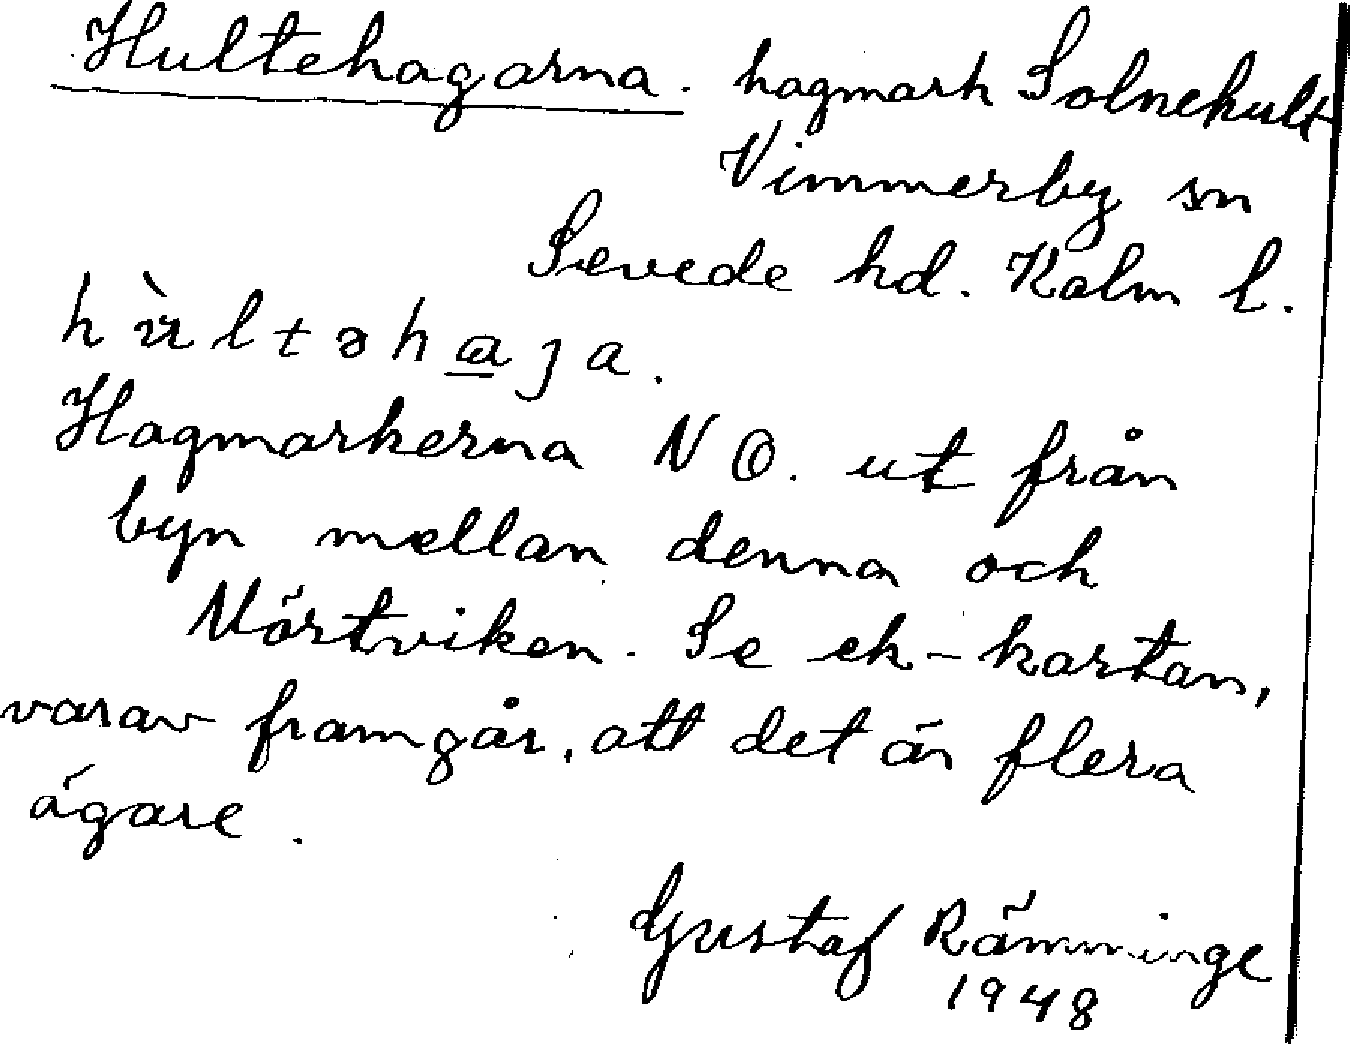 Hultehagarna. hagmark Solnehult
Vimmerby sn
Sevede hd. Kalm l.
hùltəhaja.
Hagmarkerna NO. ut från
byn mellan denna och
Mörtviken. Se ek-kartan,
varav framgår, att det är flera
ägare.
Gustaf Rämminge
1948